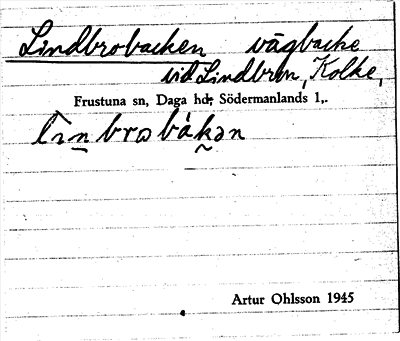 Lindbrobacken vägbacke
vid Lindbron, Kolke,
Frustuna sn, Daga hd, Södermanlands l,.
Artur Ohlsson 1945